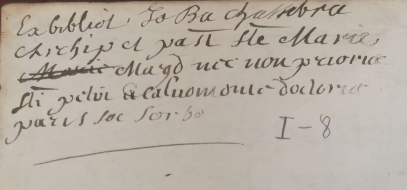 Ex bibliot. Jo Ba Chassebra
Archip et past Ste Marie
Magd nec non prioris
Sti petri doctoris
paris soc Sorbo
I-8